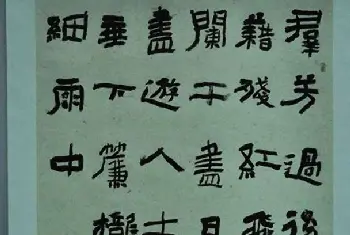 羣芳過後
藉殘紅飛
闌干盡日
盡遊人去
垂下簾櫳
細雨中